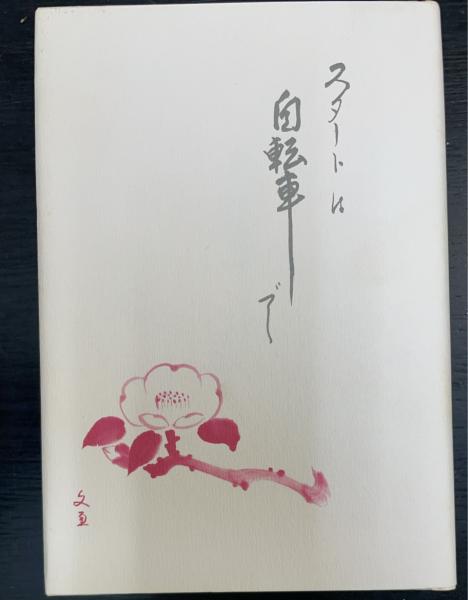 スタートは
自転車で